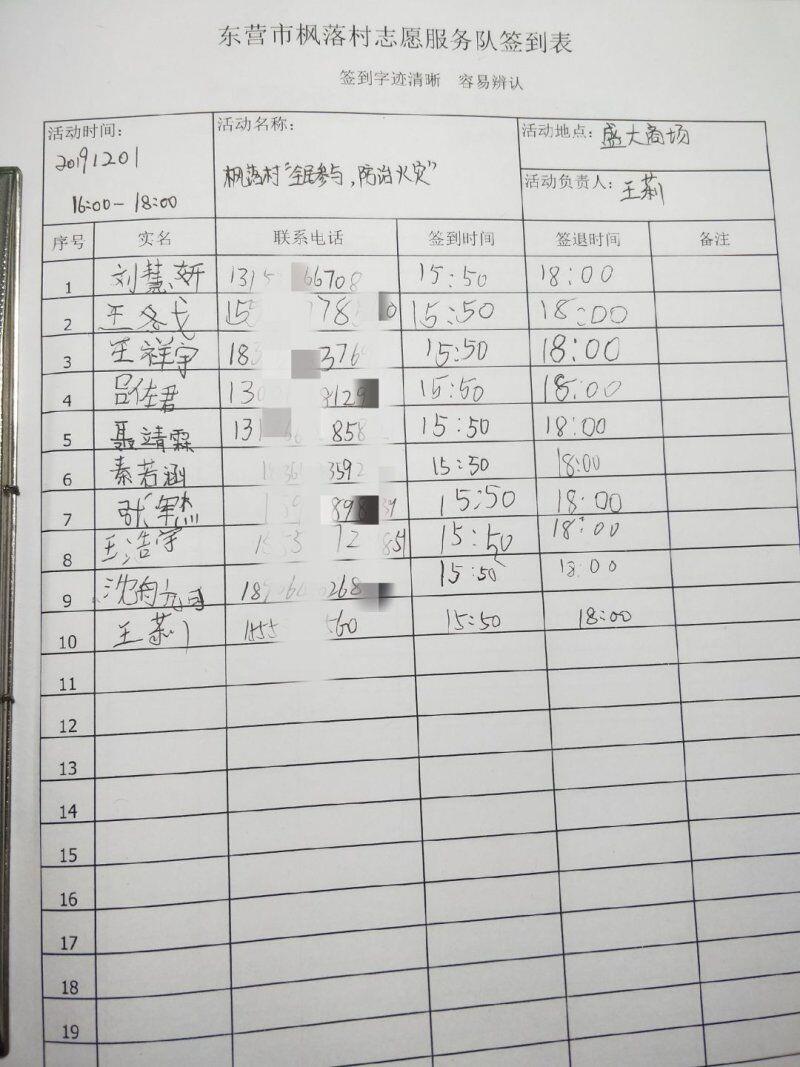 东营市枫落村志愿服务队签到表
签到字迹清晰 容易辨认
活动时间: 20191201 16:00-18:00
活动名称: 枫落村"全民参与,防治火灾"
活动地点: 盛大商场
活动负责人: 王莉
序号 实名 联系电话 签到时间 签退时间 备注
1 刘慧妍 1315 66708 15:50 18:00
2 王冬戈 155 178 0 15:50 18:00
3 王祥宇 183 376 15:50 18:00
4 吕佐君 130 8129 15:50 18:00
5 聂靖霖 131 858 15:50 18:00
6 秦若涵 1836 3592 15:50 18:00
7 159 898 39 15:50 18:00
8 王浩宇 1553 12 851 15:50 18:00
9 268 15:50 18:00
10 王莉 155 560 15:50 18:00
11
12
13
14
15
16
17
18
19